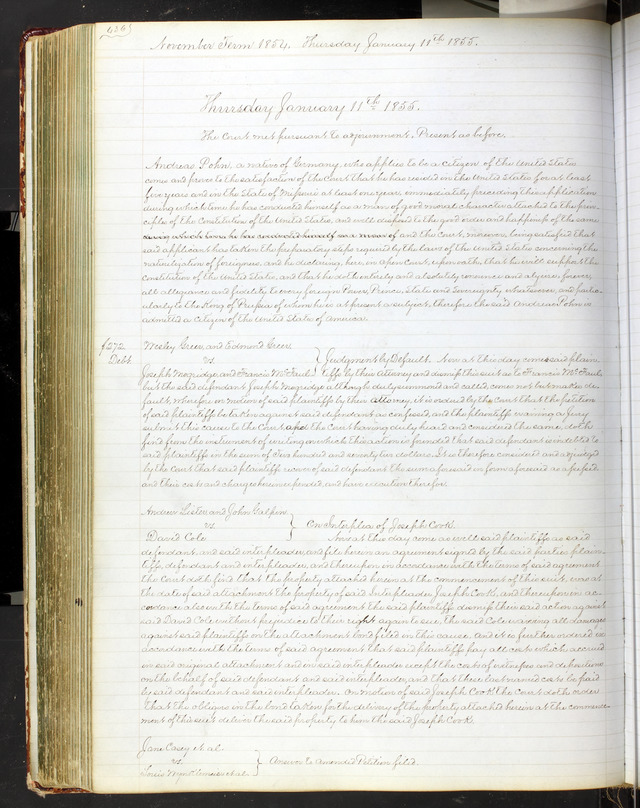 426
November Term 1854. Thursday January 11th 1855.
Thursday January 11th 1855.
The Court met pursuant to adjournment. Present as before.
Andreas Pohn, a native of Germany, who applies to be a citizen of the United States
comes and proves to the satisfaction of the Court that he has resided in the United States for at least
five years and in the State of Missouri at least one year, immediately preceding this application
during which time he has conducted himself as a man of good moral character attached to the prin-
ciples of the Constitution of the United States, and well disposed to the good order and happiness of the same
during which time he has conducted himself as a man of and the Court, moreover, being satisfied that
said applicant has taken the preparatory steps required by the laws of the United States concerning the
naturalization of foreigners, and he declaring, here, in open Court, upon oath, that he will support the
Constitution of the United States, and that he doth entirely and absolutely renounce and abjure, forever,
all allegiance and fidelity to every foreign Power, Prince, State and Sovereignty whatsoever, and particu-
larly to the King of Prussia of whom he is at present a subject, therefore the said Andreas Pohn is
admitted a citizen of the United States of America.
Wesley Greer, and Edmond Greer
272
Debt
vs.
Judgment by Default. Now at this day come said plain-
Joseph Mogridge, and Francis McFaul
tiffs by their attorney and dismiss this suit as to Francis McFaul
but the said defendant Joseph Mogridge although duly summoned and called, comes not but makes de-
fault, wherefore on motion of said plaintiffs by their attorney, it is ordered by the Court that the petition
of said plaintiffs be taken against said defendant as confessed, and the plaintiffs waiving a Jury
submit this cause to the Court, and the Court having duly heard and considered the same, doth
find from the instrument of writing on which this action is founded that said defendant is indebted to
said plaintiffs in the sum of two hundred and seventy two dollars. It is therefore considered and adjudged
by the Court that said plaintiffs recover of said defendant the sum aforesaid in form aforesaid as specified
and their costs and charges herein expended, and have execution therefor.
Andrew Lister, and John Galpin
vs.
On Interplea of Joseph Cook.
David Cole
Now at this day come as well said plaintiffs as said
defendant, and said interpleader, and file herein an agreement signed by the said parties plain-
tiff, defendant and interpleader, and thereupon in accordance with the terms of said agreement
the Court doth find that the property attached herein at the commencement of this suit, was at
the date of said attachment the property of said Interpleader Joseph Cook, and thereupon in ac-
cordance also with the terms of said agreement the said plaintiffs dismiss their said action against
said David Cole without prejudice to their right again to sue, the said Cole waiving all damages
against said plaintiffs on the attachment bond filed in this cause. And it is further ordered in
accordance with the terms of said agreement that said plaintiffs pay all costs which accrued
in said original attachment and on said interpleader except the costs of witnesses and depositions
on the behalf of said defendant and said interpleader, and that these last named costs be paid
by said defendant and said interpleader. On motion of said Joseph Cook the Court doth order
that the obligors in the bond taken for the delivery of the property attached herein at the commence-
ment of this suit deliver the said property to him the said Joseph Cook.
Jane Casey et al.
vs.
Answer to Amended Petition filed.
Louis
et al.